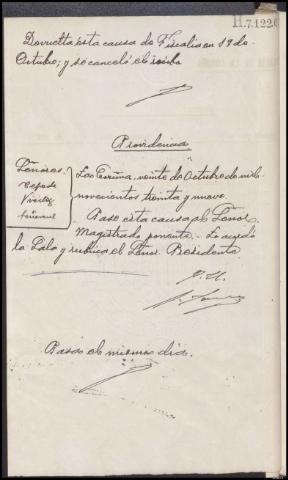 H.7.122
Devuelta esta causa de Fiscalia en 19 de
Octubre; y se canceló el recibo
Providencia
Señores.
La Coruña, veinte de Octubre de mil
novecientos treinta y nueve.
Pase esta causa al Señor
Magistrado ponente.- Lo acordó
la Sala y rubrica el Señor Presidente.
Pasa el mismo dia.